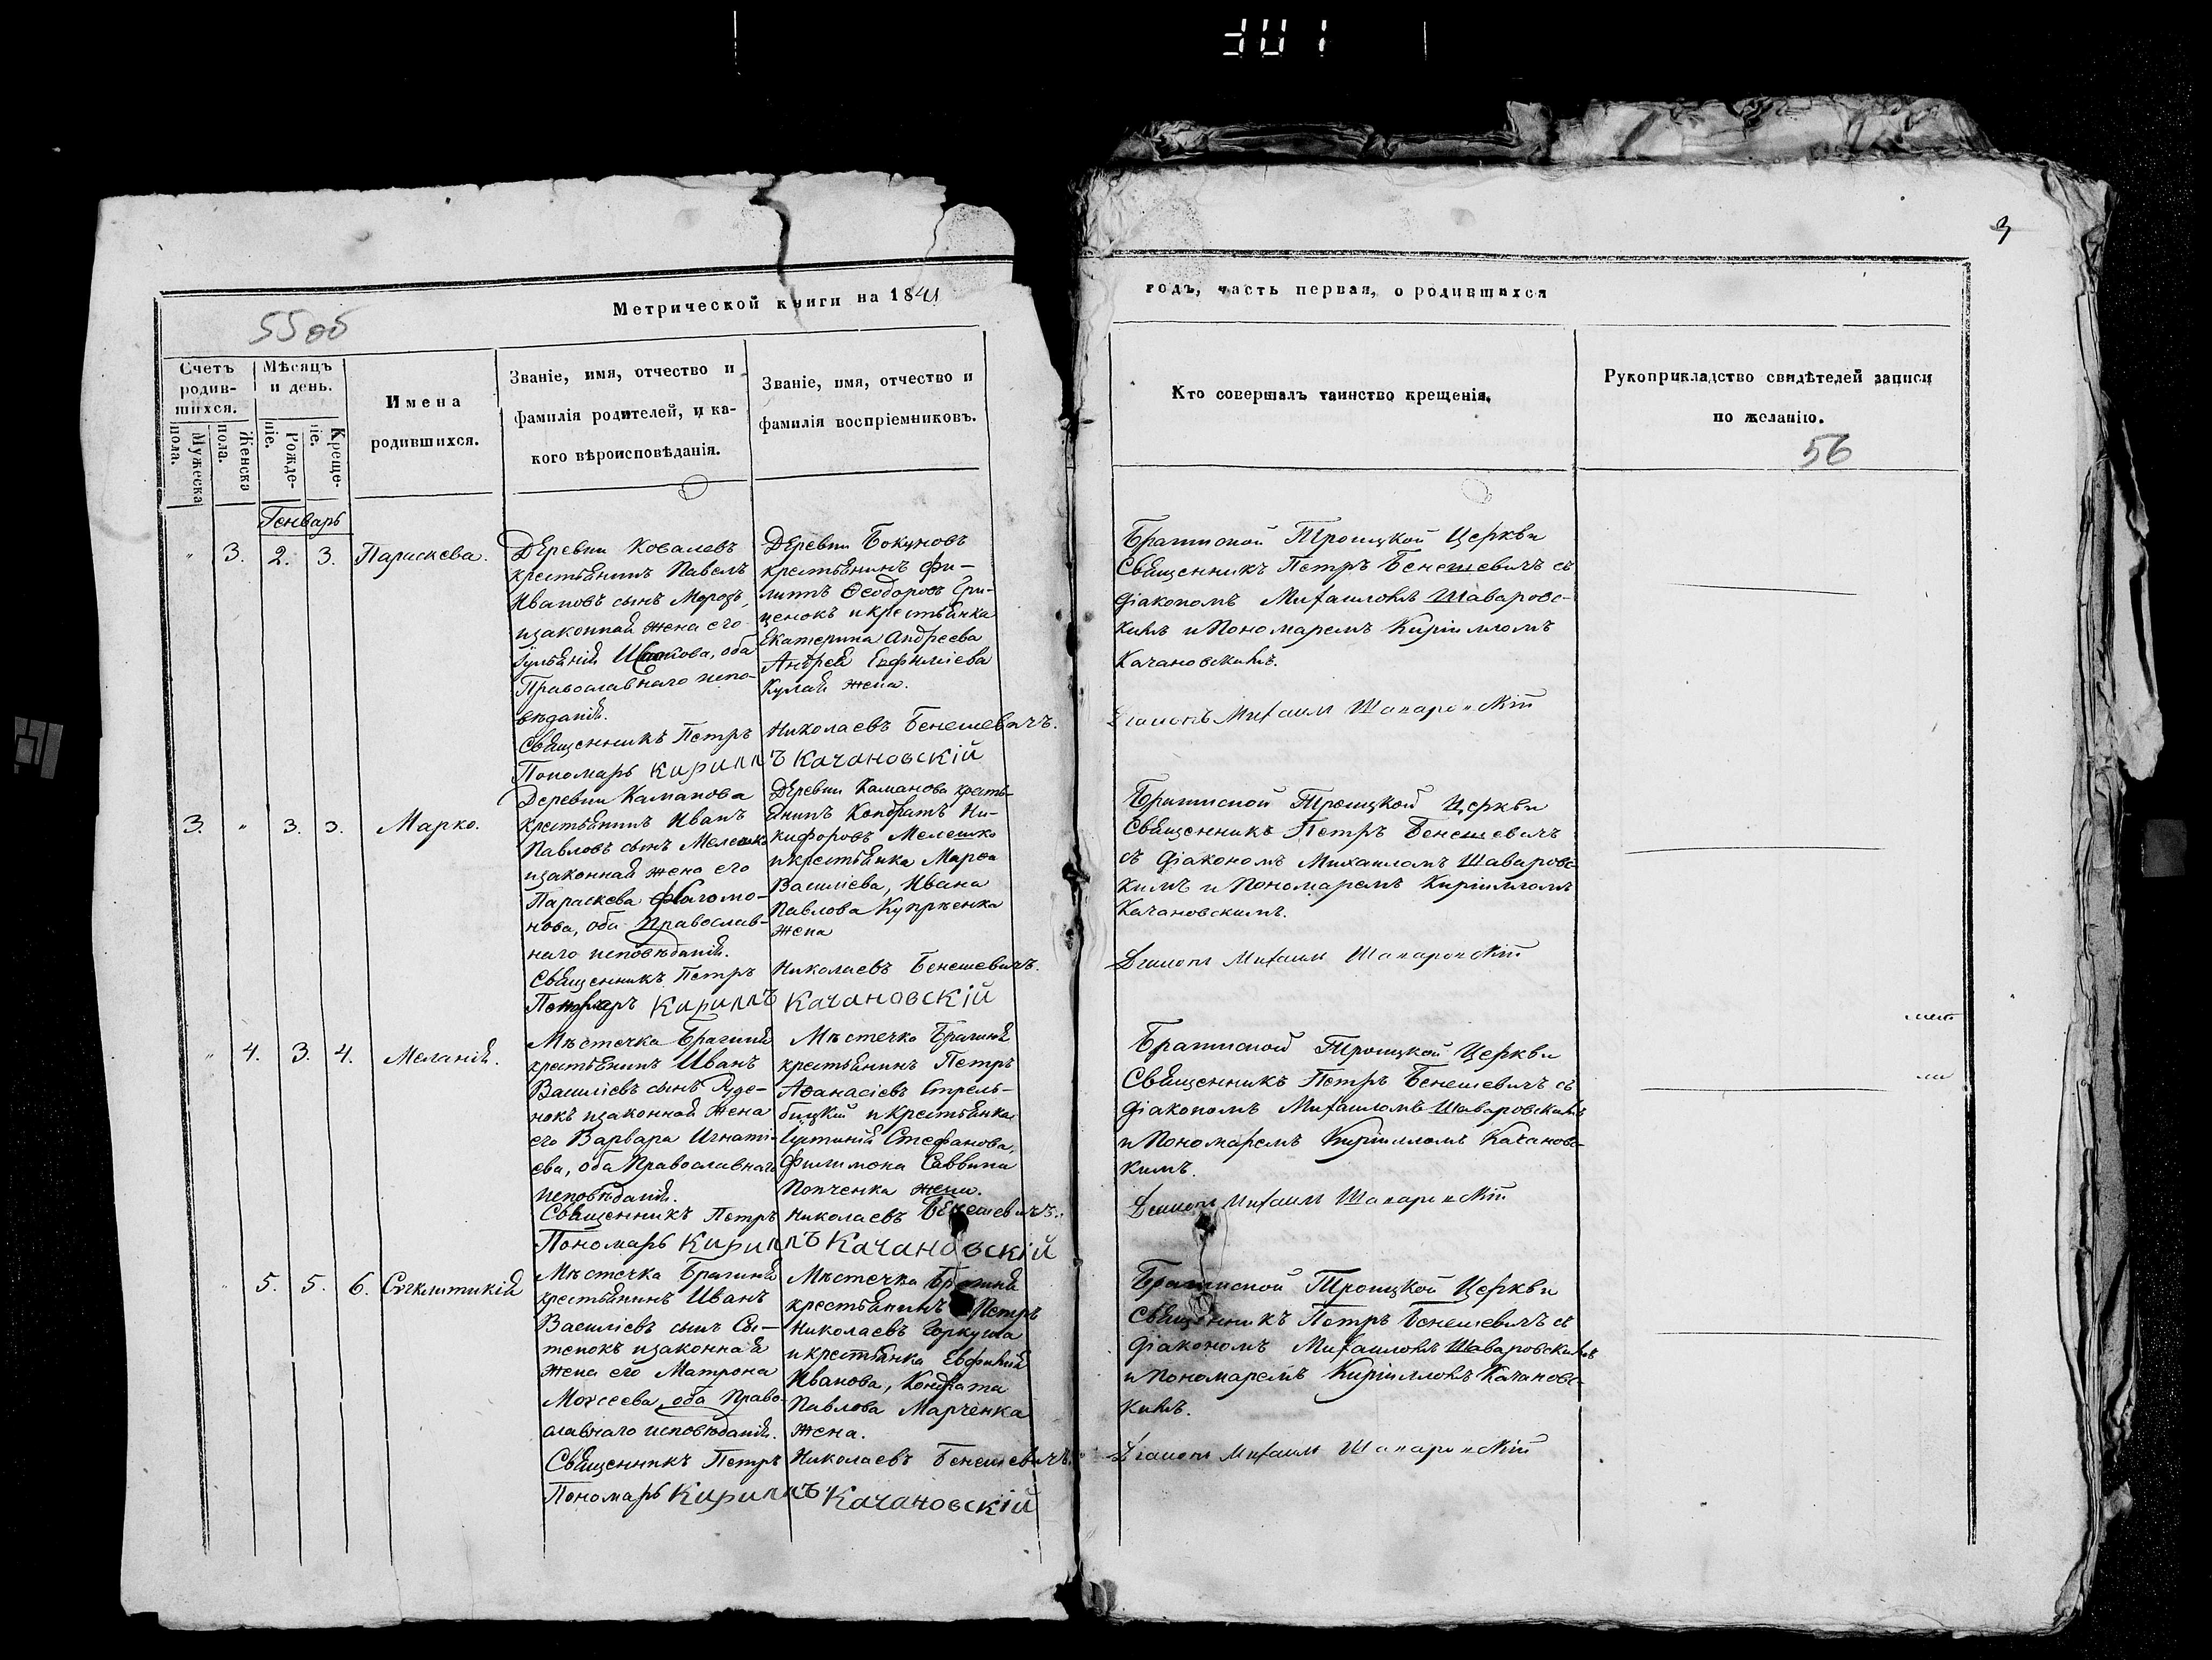 301
3
Метрической книги на 1841
годъ, часть первая, о родившихся
55об
Счетъ родив-шихся.
Мужеска пола.
Женска пола.
Мѣсяцъ и день.
Рожде-ніе.
Креще-ніе.
Имена
родившихся.
Званіе, имя, отчество и
фамилія родителей, и ка-
кого вѣроисповѣданія.
Званіе, имя, отчество и
фамилія воспріемниковъ.
Кто совершалъ таинство крещенія.
Рукоприкладство свидѣтелей записи
по желанію.
56
Генварь
" 3. 2. 3. Параскева.
Деревни Ковалевъ
крестьянинъ Павелъ
Ивановъ сынъ Морозъ,
изаконная жена его
Іуліанія, оба
Православнаго испо-
вѣданія.
Деревни Бокуновъ
крестьянинъ Фи-
липпъ Ѳеодоровъ Гри-
ценокъ икрестьянка
Екатерина Андреева
Андрея Евфиміева
Кулая жена.
Священникъ Петръ Николаевъ Бенешевичъ.
Пономарь Кириллъ Качановскій
Брагинской Троицкой Церкви
Священникъ Петръ Бенешевичъ съ
Діакономъ Михаиломъ Шаваровс-
кимъ и Пономаремъ Кирилломъ
Качановскимъ.
Діаконъ Михаилъ Шаваровскій
3. " 3. 3. Марко.
Деревни Каманова
крестьянинъ Иванъ
Павловъ сынъ Мелешко
изаконная жена его
Параскева
нова, оба Православ-
наго исповѣданія.
Деревни Каманова кресть-
янинъ Кондратъ Ни-
кифоровъ Мелешко
икрестьянка Марѳа
Василіева, Ивана
Павлова Купрѣенка
жена
Священникъ Петръ Николаевъ Бенешевичъ.
Пономарь Кириллъ Качановскій
Брагинской Троицкой Церкви
Священникъ Петръ Бенешевичъ
съ Діакономъ Михаиломъ Шаваровс-
кимъ и Пономаремъ Кирилломъ
Качановскимъ.
Діаконъ Михаилъ Шаваровскій
" 4. 3. 4. Меланія.
Мѣстечка Брагиня
крестьянинъ Иванъ
Василіевъ сынъ Руде-
нокъ изаконная жена
его Варвара Игнаті-
ева, оба Православнаго
исповѣданія.
Мѣстечка Брагиня
крестьянинъ Петръ
Аѳанасіевъ Стрель-
бицкій икрестьянка
Іустинія Стефанова,
Филимона Саввина
Попченка жена.
Священникъ Петръ Николаевъ Бенешевичъ.
Пономарь Кириллъ Качановскій
Брагинской Троицкой Церкви
Священникъ Петръ Бенешевичъ съ
Діакономъ Михаиломъ Шаваровскимъ
и Пономаремъ Кирилломъ Качановс-
кимъ.
Діаконъ Михаилъ Шаваровскій
" 5. 5. 6. Сѵгклитикія
Мѣстечка Брагиня
крестьянинъ Иванъ
Василіевъ сынъ
тенокъ изаконная
жена его Матрона
Моѵсеева, оба Право-
славнаго исповѣданія.
Мѣстечка Брагиня
крестьянинъ Петръ
Николаевъ Горкуша
икрестьянка Евфимія
Иванова, Кондрата
Павлова Марченка
жена.
Священникъ Петръ Николаевъ Бенешевичъ.
Пономарь Кириллъ Качановскій
Брагинской Троицкой Церкви
Священникъ Петръ Бенешевичъ съ
Діакономъ Михаиломъ Шаваровскимъ
и Пономаремъ Кирилломъ Качановс-
кимъ.
Діаконъ Михаилъ Шаваровскій